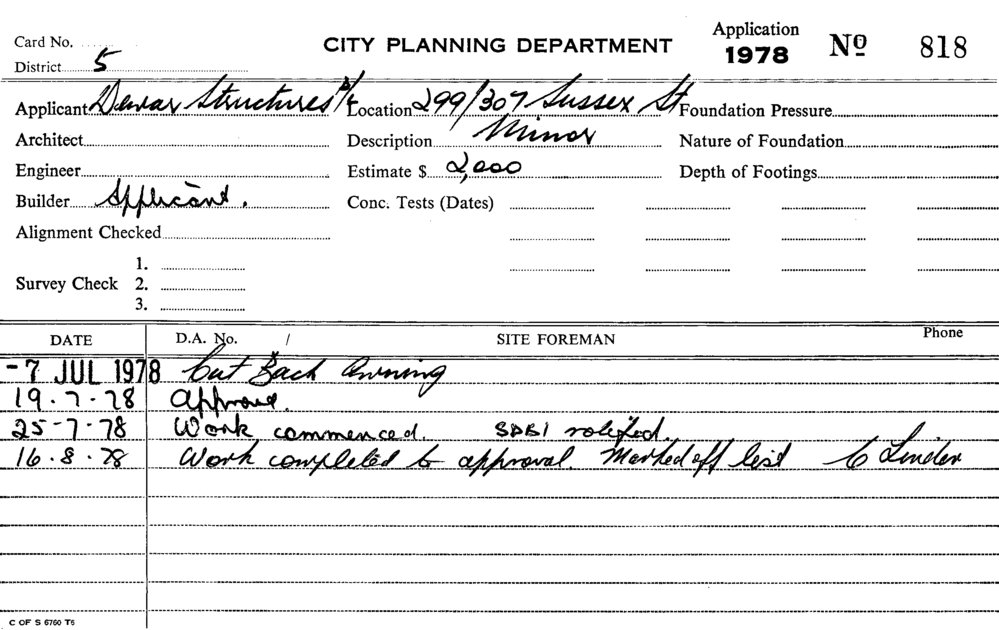 Card No.
CITY PLANNING DEPARTMENT
Application 1978 No 818
District 5
Applicant Dewar Structures P/L Location 299/307 Sussex St Foundation Pressure
Architect Description Minor Nature of Foundation
Engineer Estimate $ 2,000 Depth of Footings
Builder Applicant. Conc. Tests (Dates)
Alignment Checked
1.
Survey Check 2.
3.
DATE D.A. No. / SITE FOREMAN Phone
-7 JUL 1978 Cut Back Awning
19.7.78
25-7-78 Work commenced. SDBI notified.
16.8.78 Work completed to approval. Marked off list C Linder
C OF S 6760 T6